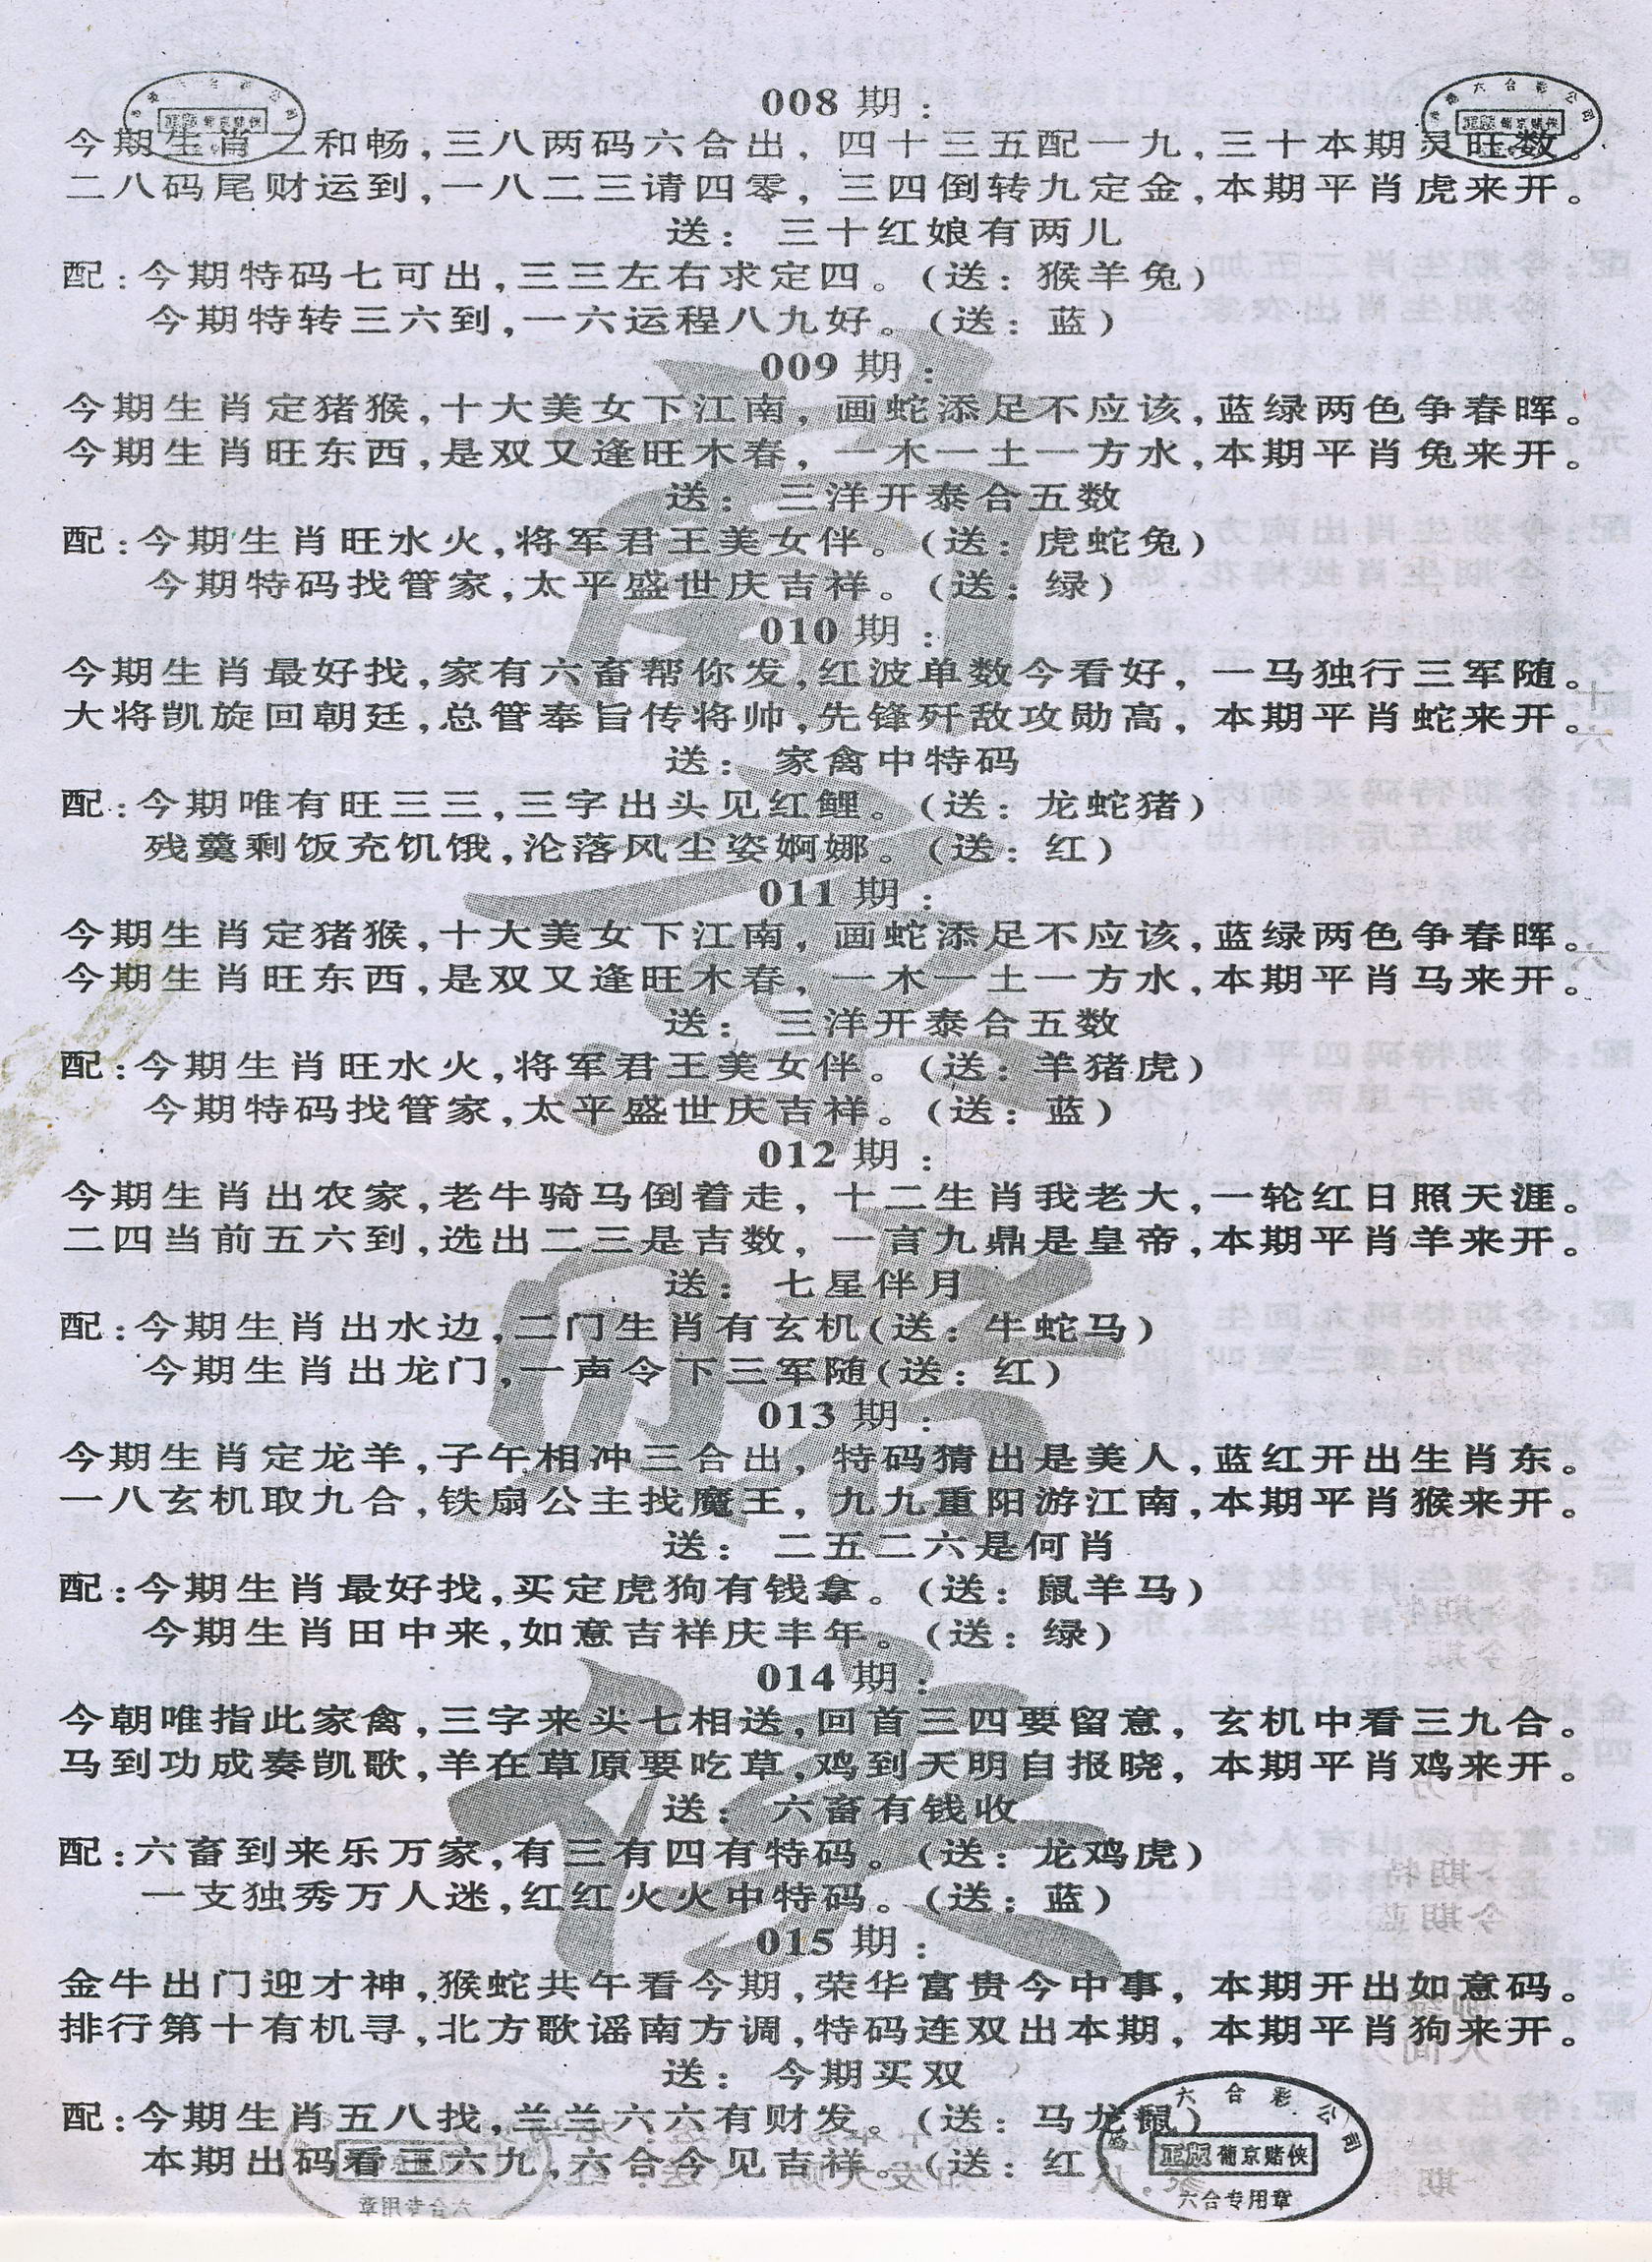 008 期：
今期生肖二和畅,三八两码六合出,四十三五配一九,三十本期灵旺数。
二八码尾财运到,一八二三请四零,三四倒转九定金,本期平肖虎来开。
送：三十红娘有两儿
配:今期特码七可出,三三左右求定四。(送：猴羊兔)
今期特转三六到,一六运程八九好。(送：蓝)
009 期：
今期生肖定猪猴,十大美女下江南,画蛇添足不应该,蓝绿两色争春晖。
今期生肖旺东西,是双又逢旺木春,一木一土一方水,本期平肖兔来开。
送：三洋开泰合五数
配:今期生肖旺水火,将军君王美女伴。(送：虎蛇兔)
今期特码找管家,太平盛世庆吉祥。(送：绿)
010 期：
今期生肖最好找,家有六畜帮你发,红波单数今看好,一马独行三军随。
大将凯旋回朝廷,总管奉旨传将帅,先锋歼敌攻勋高,本期平肖蛇来开。
送：家禽中特码
配:今期唯有旺三三,三字出头见红鲤。(送：龙蛇猪)
残羹剩饭充饥饿,沦落风尘姿婀娜。(送：红)
011 期：
今期生肖定猪猴,十大美女下江南,画蛇添足不应该,蓝绿两色争春晖。
今期生肖旺东西,是双又逢旺木春,一木一土一方水,本期平肖马来开。
送：三洋开泰合五数
配:今期生肖旺水火,将军君王美女伴。(送：羊猪虎)
今期特码找管家,太平盛世庆吉祥。(送：蓝)
012 期：
今期生肖出农家,老牛骑马倒着走,十二生肖我老大,一轮红日照天涯。
二四当前五六到,选出二三是吉数,一言九鼎是皇帝,本期平肖羊来开。
送：七星伴月
配:今期生肖出水边,二门生肖有玄机(送：牛蛇马)
今期生肖出龙门,一声令下三军随(送：红)
013 期：
今期生肖定龙羊,子午相冲三合出,特码猜出是美人,蓝红开出生肖东。
一八玄机取九合,铁扇公主找魔王,九九重阳游江南,本期平肖猴来开。
送：二五二六是何肖
配:今期生肖最好找,买定虎狗有钱拿。(送：鼠羊马)
今期生肖田中来,如意吉祥庆丰年。(送：绿)
014 期：
今朝唯指此家禽,三字来头七相送,回首三四要留意,玄机中看三九合。
马到功成奏凯歌,羊在草原要吃草,鸡到天明自报晓,本期平肖鸡来开。
送：六畜有钱收
配:六畜到来乐万家,有三有四有特码。(送：龙鸡虎)
一支独秀万人迷,红红火火中特码。(送：蓝)
015 期：
金牛出门迎才神,猴蛇共午看今期,荣华富贵今中事,本期开出如意码。
排行第十有机寻,北方歌谣南方调,特码连双出本期,本期平肖狗来开。
送：今期买双
配:今期生肖五八找,兰兰六六有财发。(送：马龙鼠)
本期出码看三六九,六合今见吉祥。(送：红)
六合彩公司
正版葡京赌侠
六合专用章